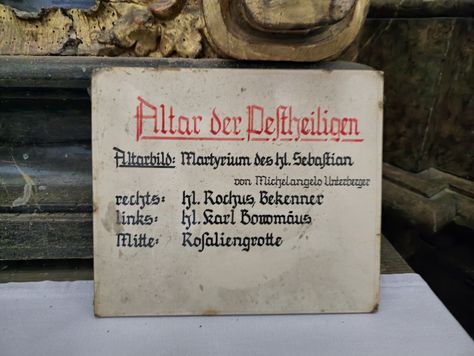 Altar der Pestheiligen
Altarbild: Martyrium des hl. Sebastian
von Michelangelo Unterberger
rechts: hl. Rochus, Bekenner
links: hl. Karl Boromäus
Mitte: Rosaliengrotte